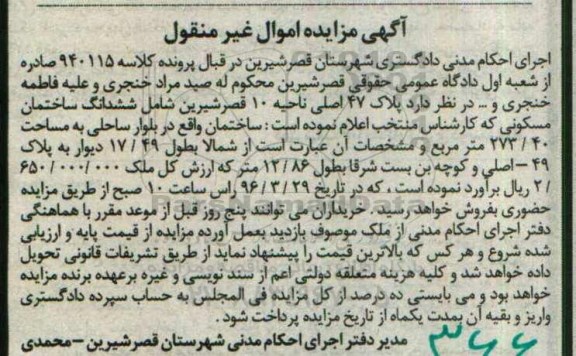 آگهی مزایده اموال غیر منقول
اجرای احکام مدنی دادگستری شهرستان قصرشیرین در قبال پرونده کلاسه ۹۴۰۱۱۵ صادره
از شعبه اول دادگاه عمومی حقوقی قصرشیرین محکوم له صید مراد خنجری و علیه فاطمه
خنجری و ... در نظر دارد پلاک ۴۷ اصلی ناحیه ۱۰ قصرشیرین شامل ششدانگ ساختمان
مسکونی که کارشناس منتخب اعلام نموده است : ساختمان واقع در بلوار ساحلی به مساحت
۲۷۳/۴۰ متر مربع و مشخصات آن عبارت است از شمالا بطول ۱۷/۴۹ دیوار به پلاک
۴۹ – اصلی و کوچه بن بست شرقا بطول ۱۲/۸۶ متر که ارزش کل ملک ۶۵۰/۰۰۰/۰۰۰
/۲ ریال برآورد نموده است ، که در تاریخ ۹۶/۳/۲۹ راس ساعت ۱۰ صبح از طریق مزایده
حضوری بفروش خواهد رسید . خریداران می توانند پنج روز قبل از موعد مقرر با هماهنگی
دفتر اجرای احکام مدنی از ملک موصوف بازدید بعمل آورده مزایده از قیمت پایه و ارزیابی
شده شروع و هر کس که بالاترین قیمت را پیشنهاد نماید از طریق تشریفات قانونی تحویل
داده خواهد شد و کلیه هزینه متعلقه دولتی اعم از سند نویسی و غیره برعهده برنده مزایده
خواهد بود و می بایستی ده درصد از کل مزایده فی المجلس به حساب سپرده دادگستری
واریز و بقیه آن بمدت یکماه از تاریخ مزایده پرداخت شود .
مدیر دفتر اجرای احکام مدنی شهرستان قصرشیرین – محمدی
ParsNamadData